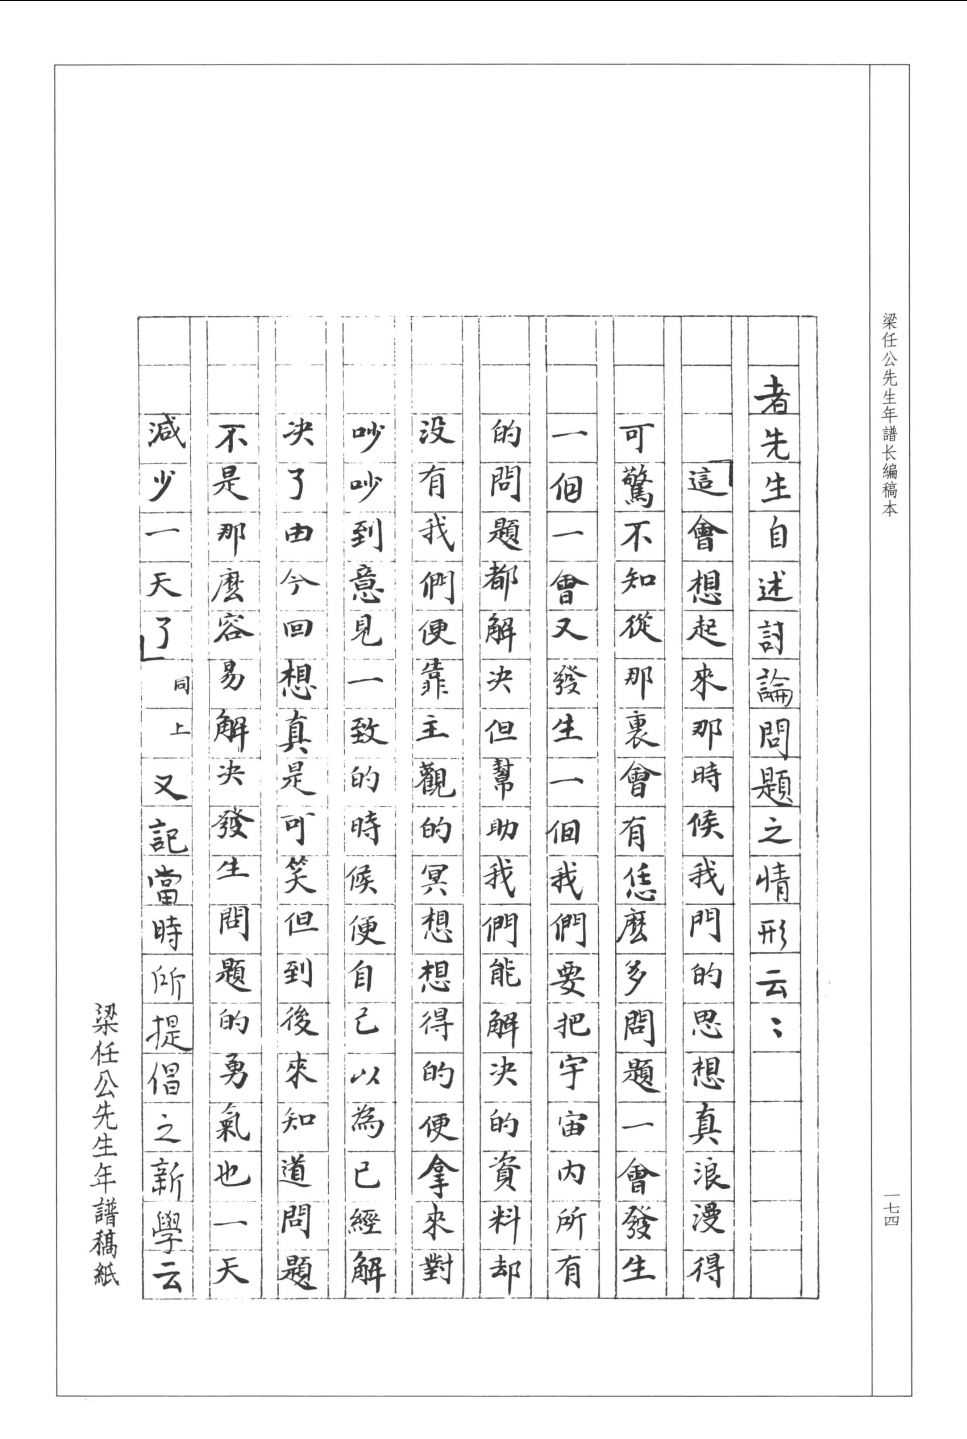 梁任公先生年譜长編稿本
一七四
者先生自述討論問題之情形云：
「這會想起來那時候我門的思想真浪漫得
可驚不知從那裏會有恁麽多問題一會發生
一個一會又發生一個我們要把宇宙内所有
的問題都解決但幫助我們能解決的資料却
没有我們便靠主觀的冥想想得的便拿來對
吵吵到意見一致的時候便自己以為已經解
决了由今回想真是可笑但到後來知道問題
不是那麽容易解决發生問題的勇氣也一天
減少一天了」同上又記當時所提倡之新學云
梁任公先生年譜稿紙